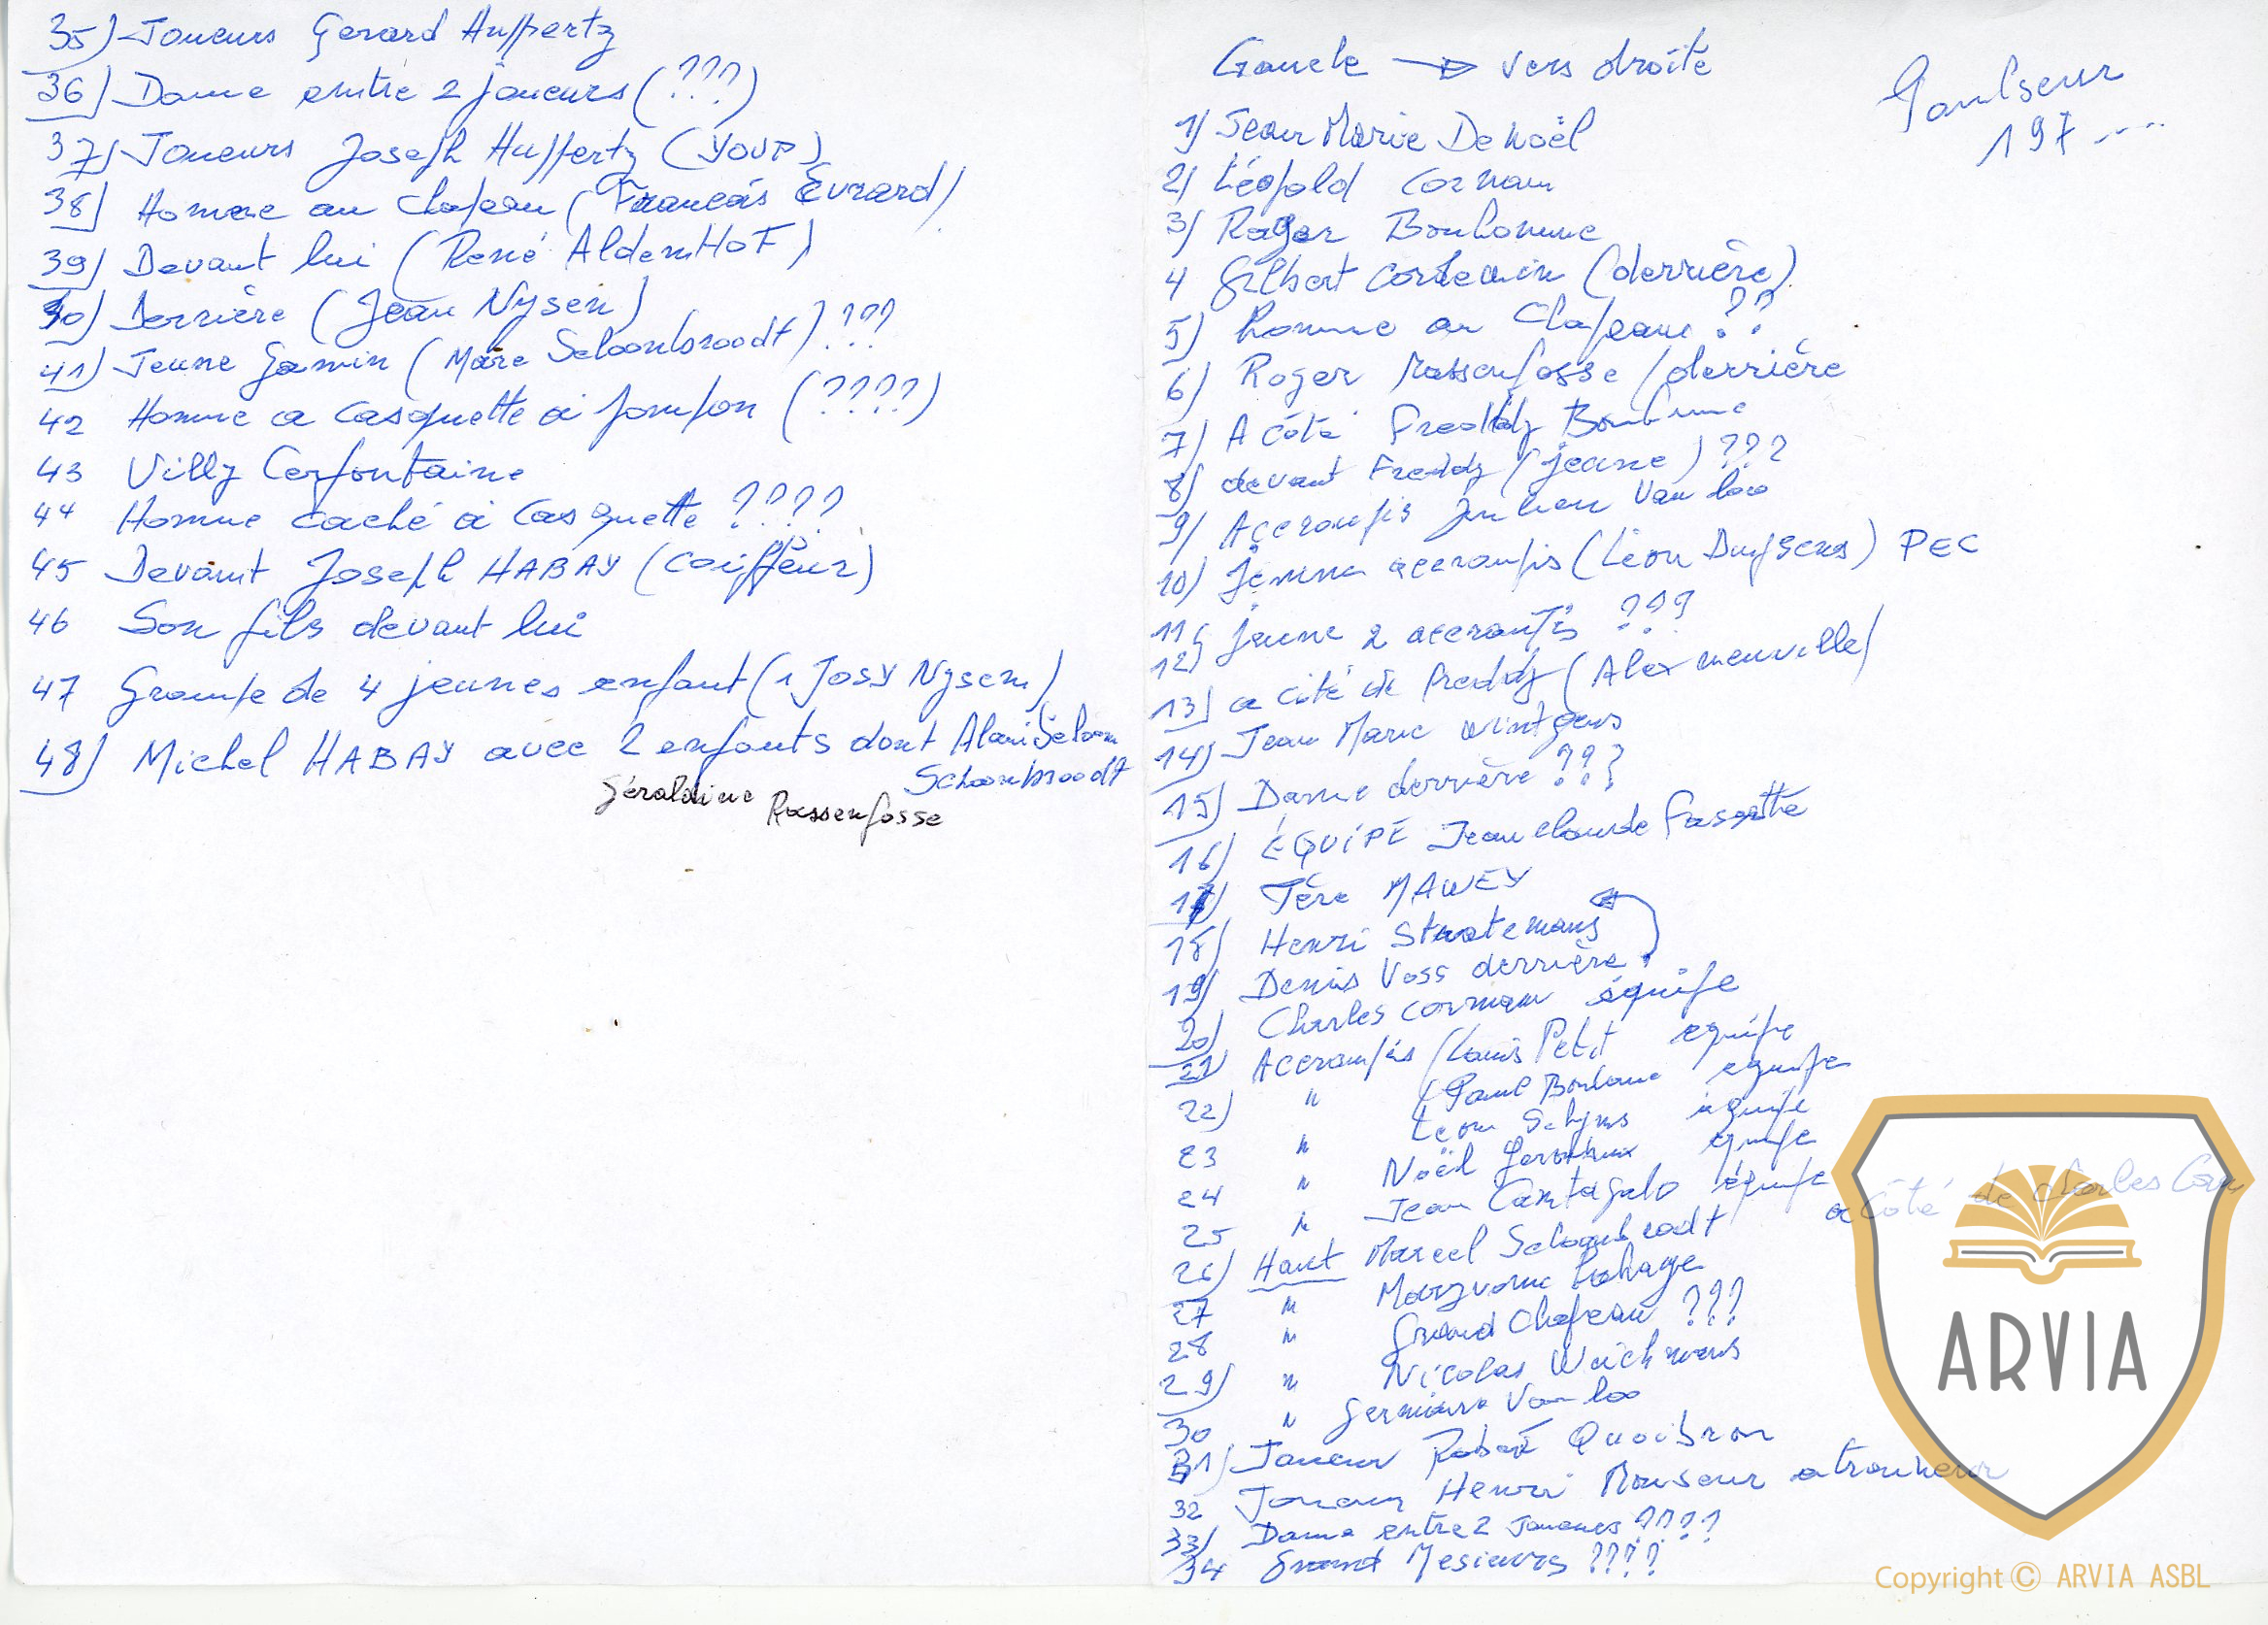 35) Joueurs Gerard Huppertz
36) Dame entre 2 joueurs (???)
37) Joueurs Joseph Huppertz (YOUP)
38) Homme au chapeau (Francois Evrard)
39) Devant lui (René AldenHoF)
40) Derrière (Jean Nysen)
41) Jeune Gamin (Marc Schoonbroodt) ???
42 Homme a casquette a pompon (????)
43 Villy Cerfontaine
44 Homme caché a casquette ????
45 Devant Joseph HABAY (coiffeur)
46 Son fils devant lui
47 Groupe de 4 jeunes enfant (1 Josy Nysen)
48) Michel HABAY avec 2 enfants dont Alain
Schoonbroodt
Géraldine Rassenfosse
Gauche → vers droite
197....
1) Jean Marie Denoël
2) Léopold Corman
3) Roger Bonhomme
4 Gilbert (derrière)
5) homme au Chapeau ??
6) Roger Rassenfosse /derrière
7) A côté Freddy
8) devant Freddy (jeune) ???
9) Accroupis Julien Van loo
10) accroupis (Léon Duyssens) PEC
11)
12) jeune 2 accroupis ???
13) a côté de Freddy (Alex meuville)
14) Jean Marie Wintgens
15) Dame derrière ???
16) ÉQUIPE Jean Claude
17) Père MAWEY
18) Henri Stratemans
19) Denis Voss derrière
20) Charles Corman équipe
21) Accroupis (Louis Petit équipe
22) " (Paul equipe
23 " Léon Schyns équipe
24 " Noël equipe
25 " Jean Cantagalo équipe
a Côté de Charles
26) Haut Marcel Schoonbroodt
27 "
28 " Grand Chapeau ???
29) " Nicolas
30 " Germaine Van loo
31) Joueur Robert Quoibron
32 Joueur Henri Monseur
33) Dame entre 2 Joueurs ????
34 Grand Mesieurs ????
ARVIA
Copyright © ARVIA ASBL